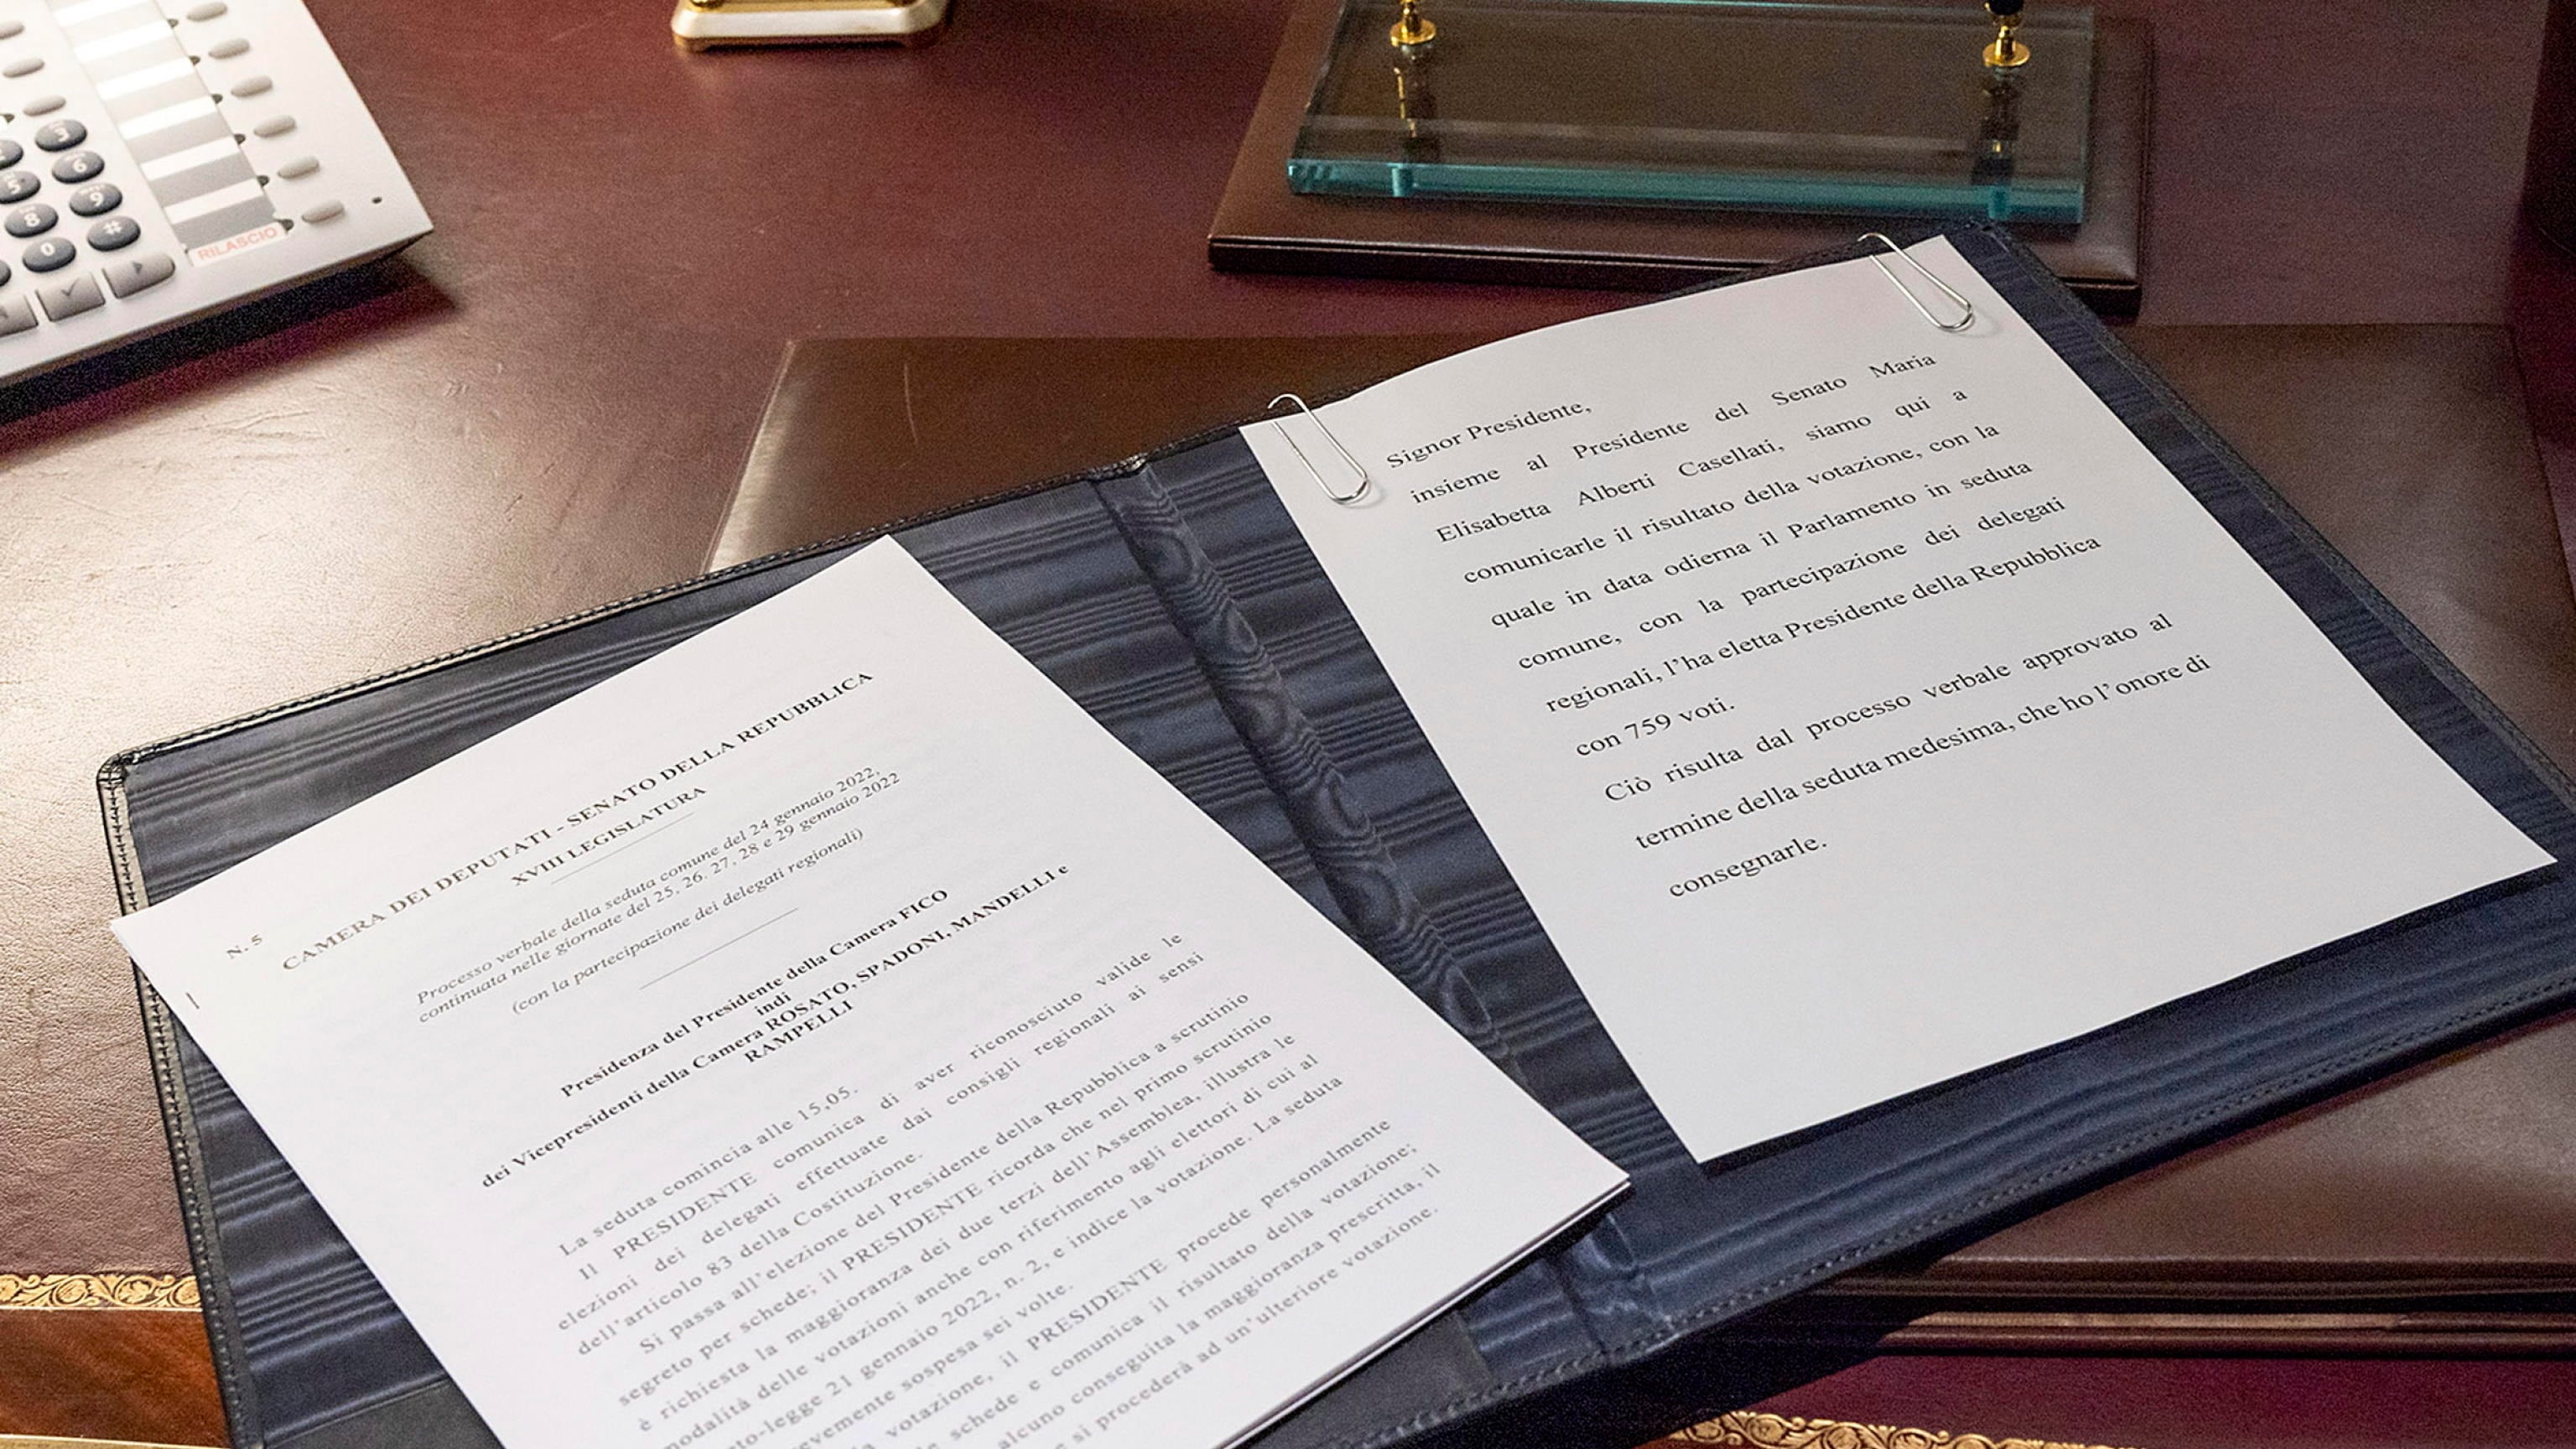 3
6
5
9
8
#
0
RILASCIO
N. 5
CAMERA DEI DEPUTATI - SENATO DELLA REPUBBLICA
XVIII LEGISLATURA
Processo verbale della seduta comune del 24 gennaio 2022,
continuata nelle giornate del 25, 26, 27, 28 e 29 gennaio 2022
(con la partecipazione dei delegati regionali)
Presidenza del Presidente della Camera FICO
indi
dei Vicepresidenti della Camera ROSATO, SPADONI, MANDELLI e
RAMPELLI
La seduta comincia alle 15,05.
Il PRESIDENTE comunica di aver riconosciuto valide le
elezioni dei delegati effettuate dai consigli regionali ai sensi
dell'articolo 83 della Costituzione.
Si passa all'elezione del Presidente della Repubblica a scrutinio
segreto per schede; il PRESIDENTE ricorda che nel primo scrutinio
è richiesta la maggioranza dei due terzi dell'Assemblea, illustra le
modalità delle votazioni anche con riferimento agli elettori di cui al
to-legge 21 gennaio 2022, n. 2, e indice la votazione. La seduta
evemente sospesa sei volte.
votazione, il PRESIDENTE procede personalmente
schede e comunica il risultato della votazione;
alcuno conseguita la maggioranza prescritta, il
e si procederà ad un'ulteriore votazione.
Signor Presidente,
insieme al Presidente del Senato Maria
Elisabetta Alberti Casellati, siamo qui a
comunicarle il risultato della votazione, con la
quale in data odierna il Parlamento in seduta
comune, con la partecipazione dei delegati
regionali, l'ha eletta Presidente della Repubblica
con 759 voti.
Ciò risulta dal processo verbale approvato al
termine della seduta medesima, che ho l'onore di
consegnarle.